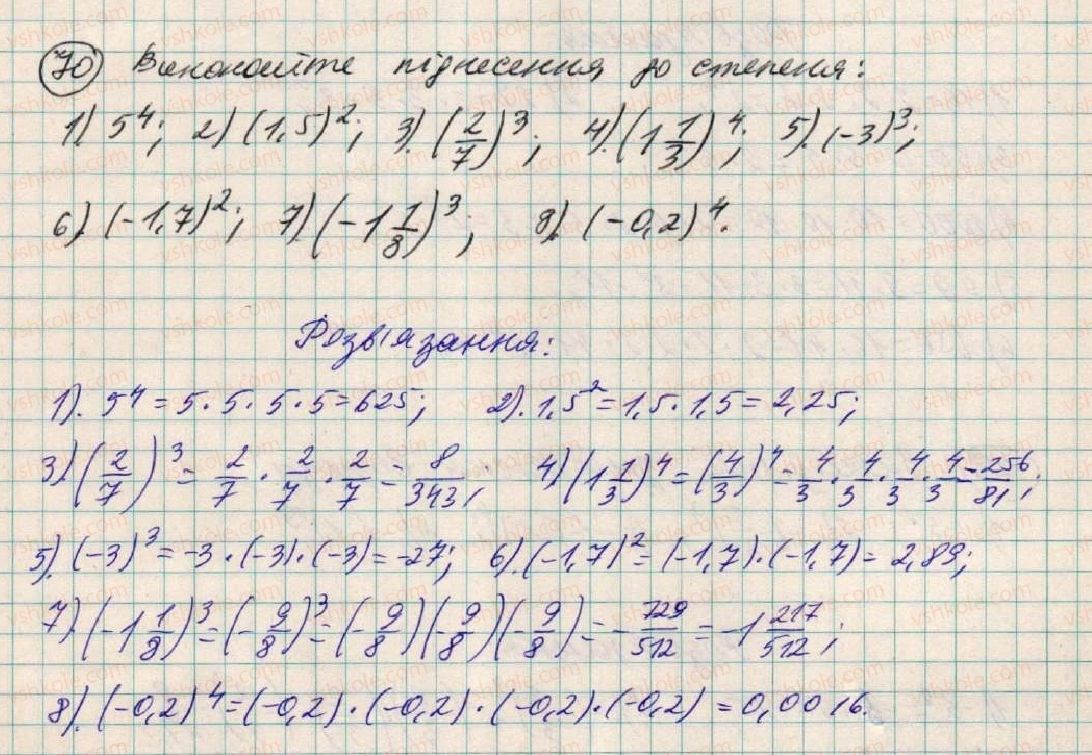 70 Виконайте піднесення до степеня:
1) 5⁴; 2) (1,5)²; 3). (2/7)³; 4). (1 1/3)⁴; 5). (-3)³;
6). (-1,7)²; 7). (-1 1/8)³; 8). (-0,2)⁴.
Розв'язання:
1). 5⁴ = 5·5·5·5 = 625; 2). 1,5² = 1,5·1,5 = 2,25;
3) (2/7)³ = 2/7 · 2/7 · 2/7 = 8/343; 4) (1 1/3)⁴ = (4/3)⁴ = 4/3 · 4/3 · 4/3 · 4/3 = 256/81;
5). (-3)³ = -3·(-3)·(-3) = -27; 6). (-1,7)² = (-1,7)·(-1,7) = 2,89;
7). (-1 1/8)³ = (-9/8)³ = (-9/8)(-9/8)(-9/8) = -729/512 = -1 217/512;
8). (-0,2)⁴ = (-0,2)·(-0,2)·(-0,2)·(-0,2) = 0,0016.